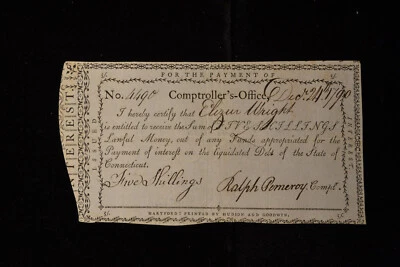 FOR THE PAYMENT OF
No. 4490 Comptroller's-Office, Decr. 24th 1790
I hereby certify that Elizur Wright
is entitled to receive the Sum of FIVE SHILLINGS
Lawful Money, out of any Funds appropriated for the
Payment of interest on the liquidated Debt of the State of
Connecticut.
Five Shillings Ralph Pomeroy Compt.
HARTFORD: PRINTED BY HUDSON AND GOODWIN.
INTEREST
ISSUED